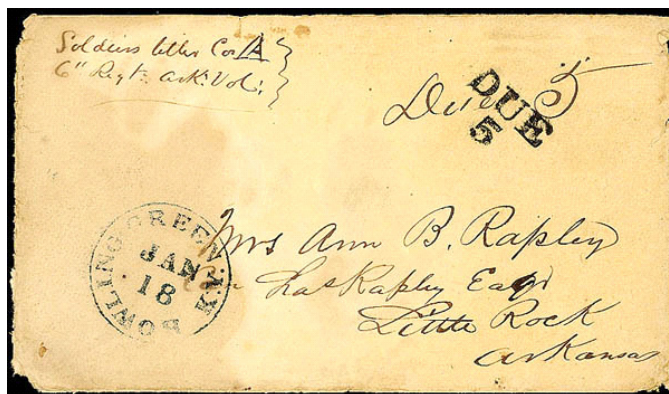 Soldiers letter Co. A
6" Regt. Ark. Vol.
Due 5
DUE
5
BOWLING GREEN KY.
JAN
18
Mrs Ann B. Rapley
Chas Rapley Esqr
Little Rock
Arkansas